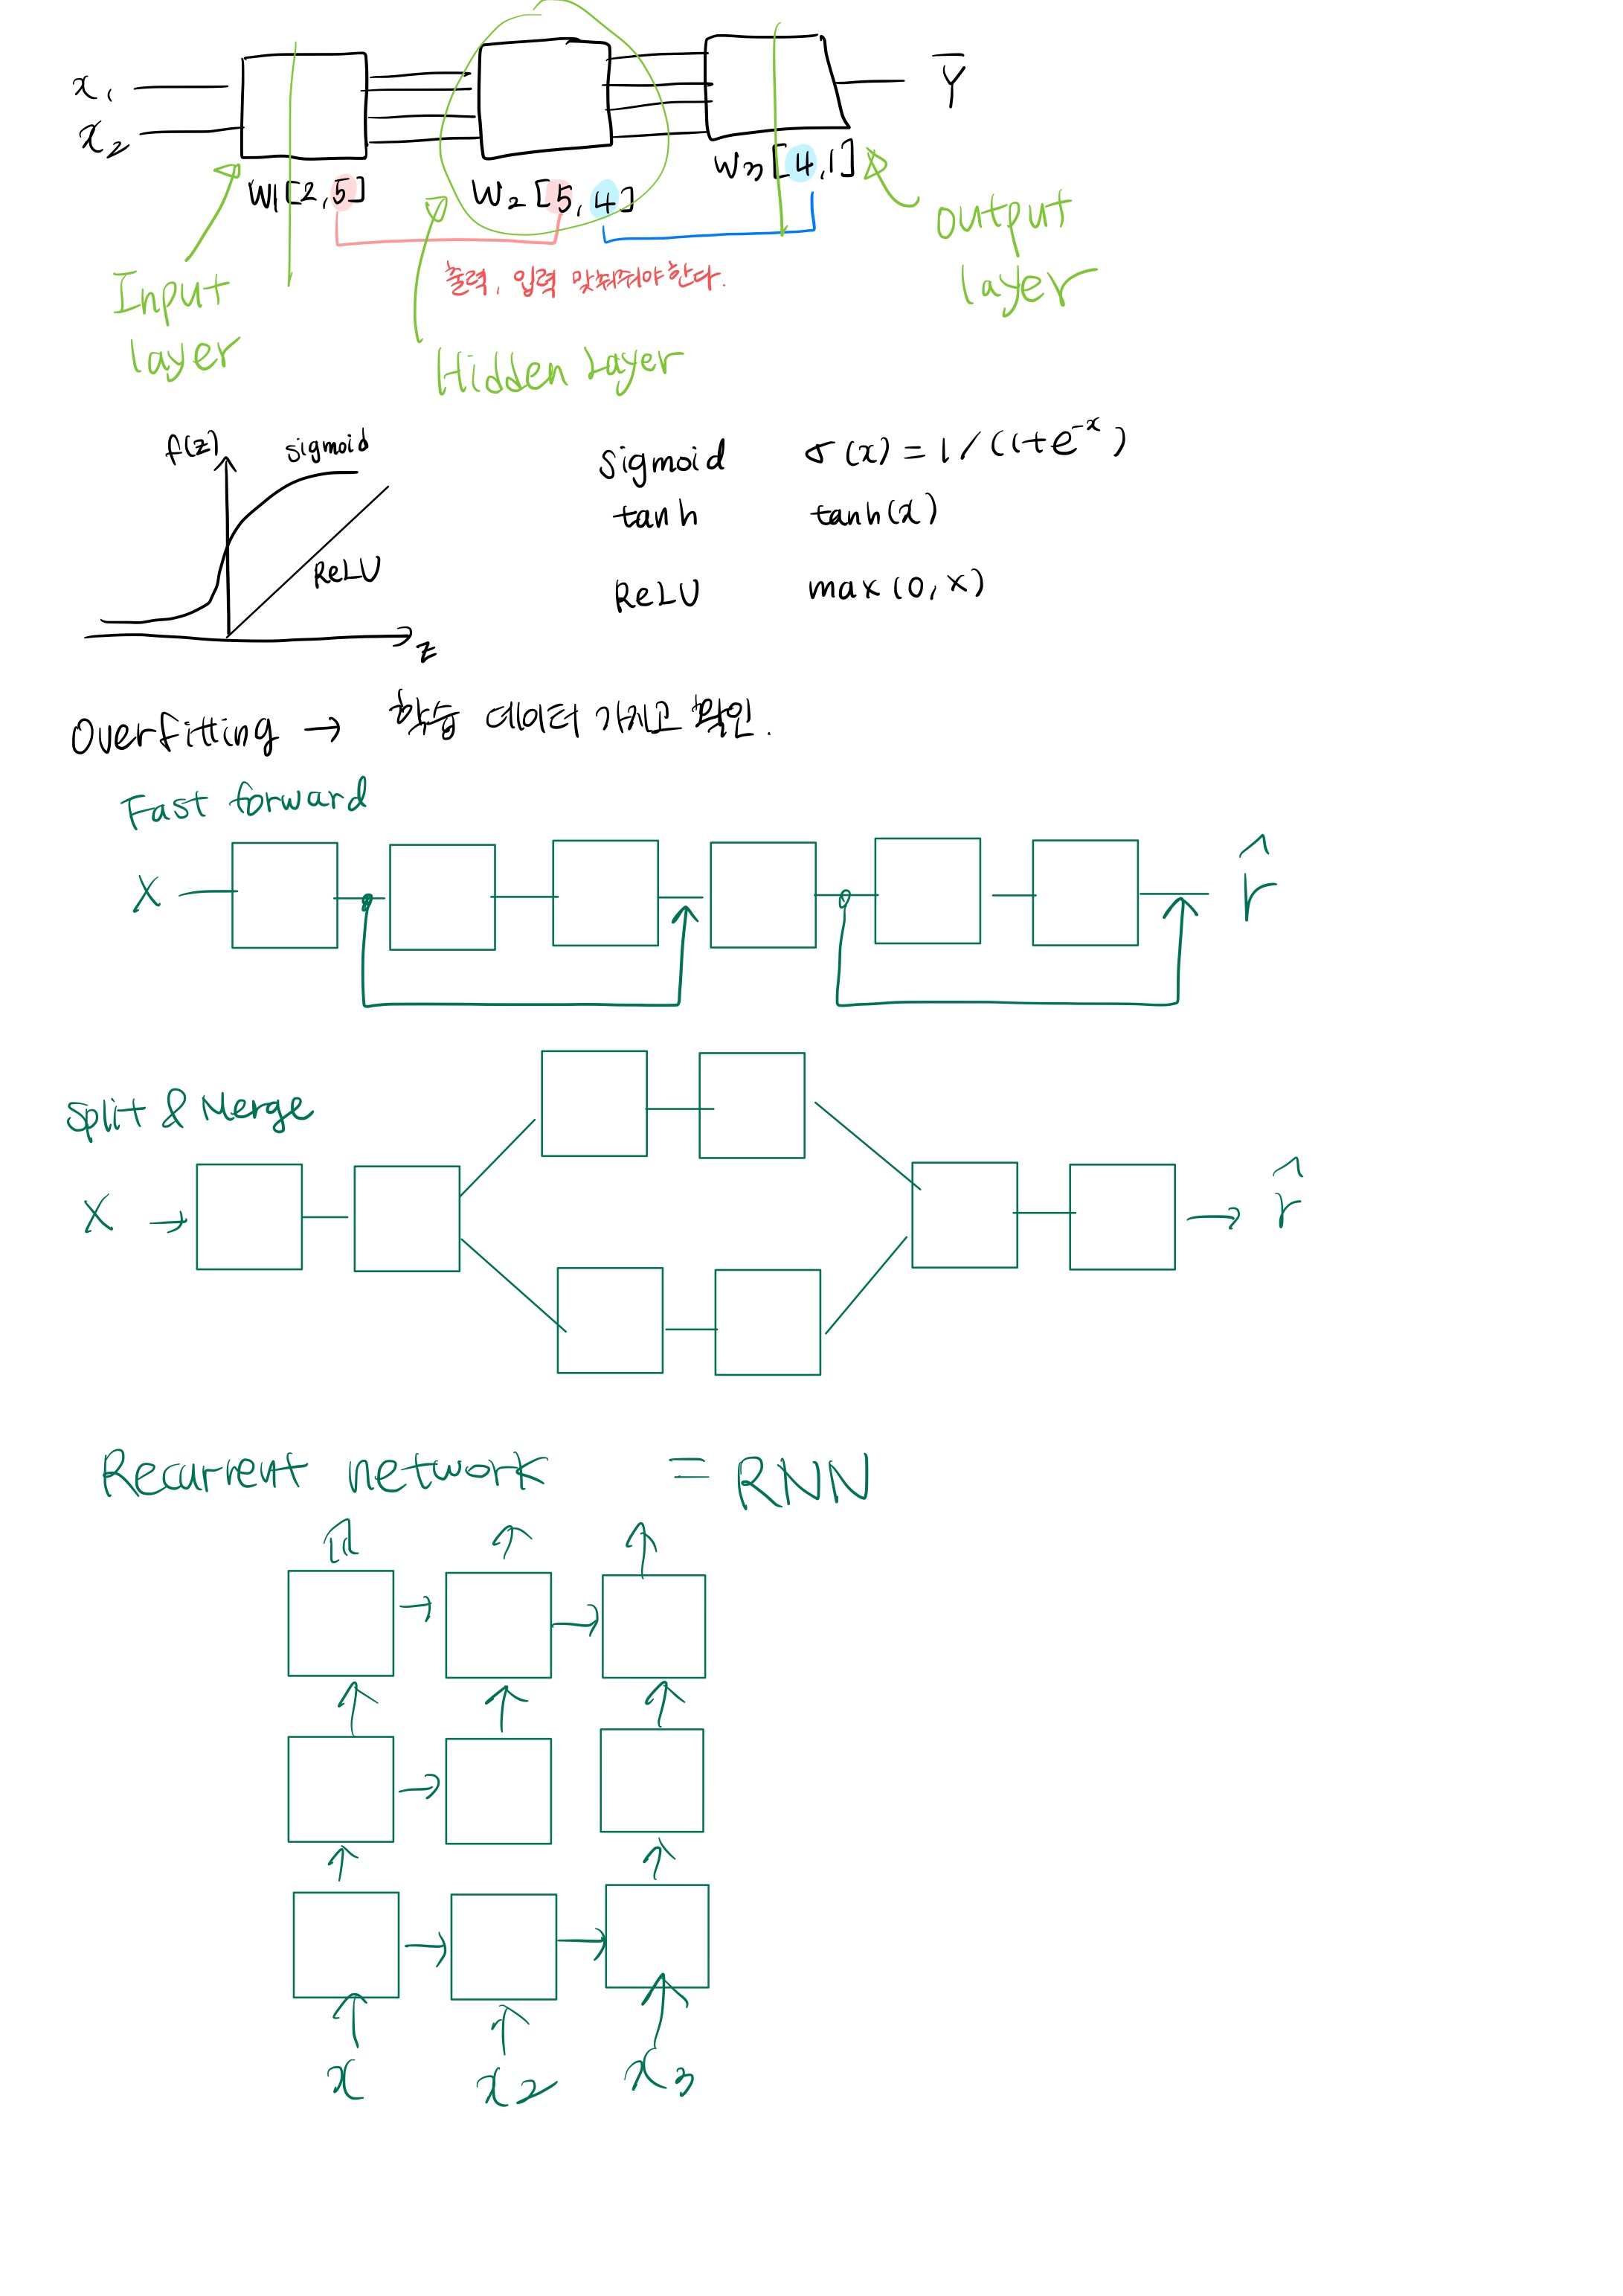 x₁
x₂
Y̅
W1[2,5]
W₂[5,4]
W₃[4,1]
Input layer
출력, 입력 맞춰줘야한다.
Hidden Layer
output layer
f(z)
sigmoid
ReLU
z
sigmoid σ(x)=1/(1+e⁻ˣ)
tanh tanh(x)
ReLU max(0,x)
Overfitting → 학습 데이터 가지고 확인.
Fast forward
X
r̂
Split & Merge
X →
→ r̂
Recurrent network = RNN
x
x2
x3